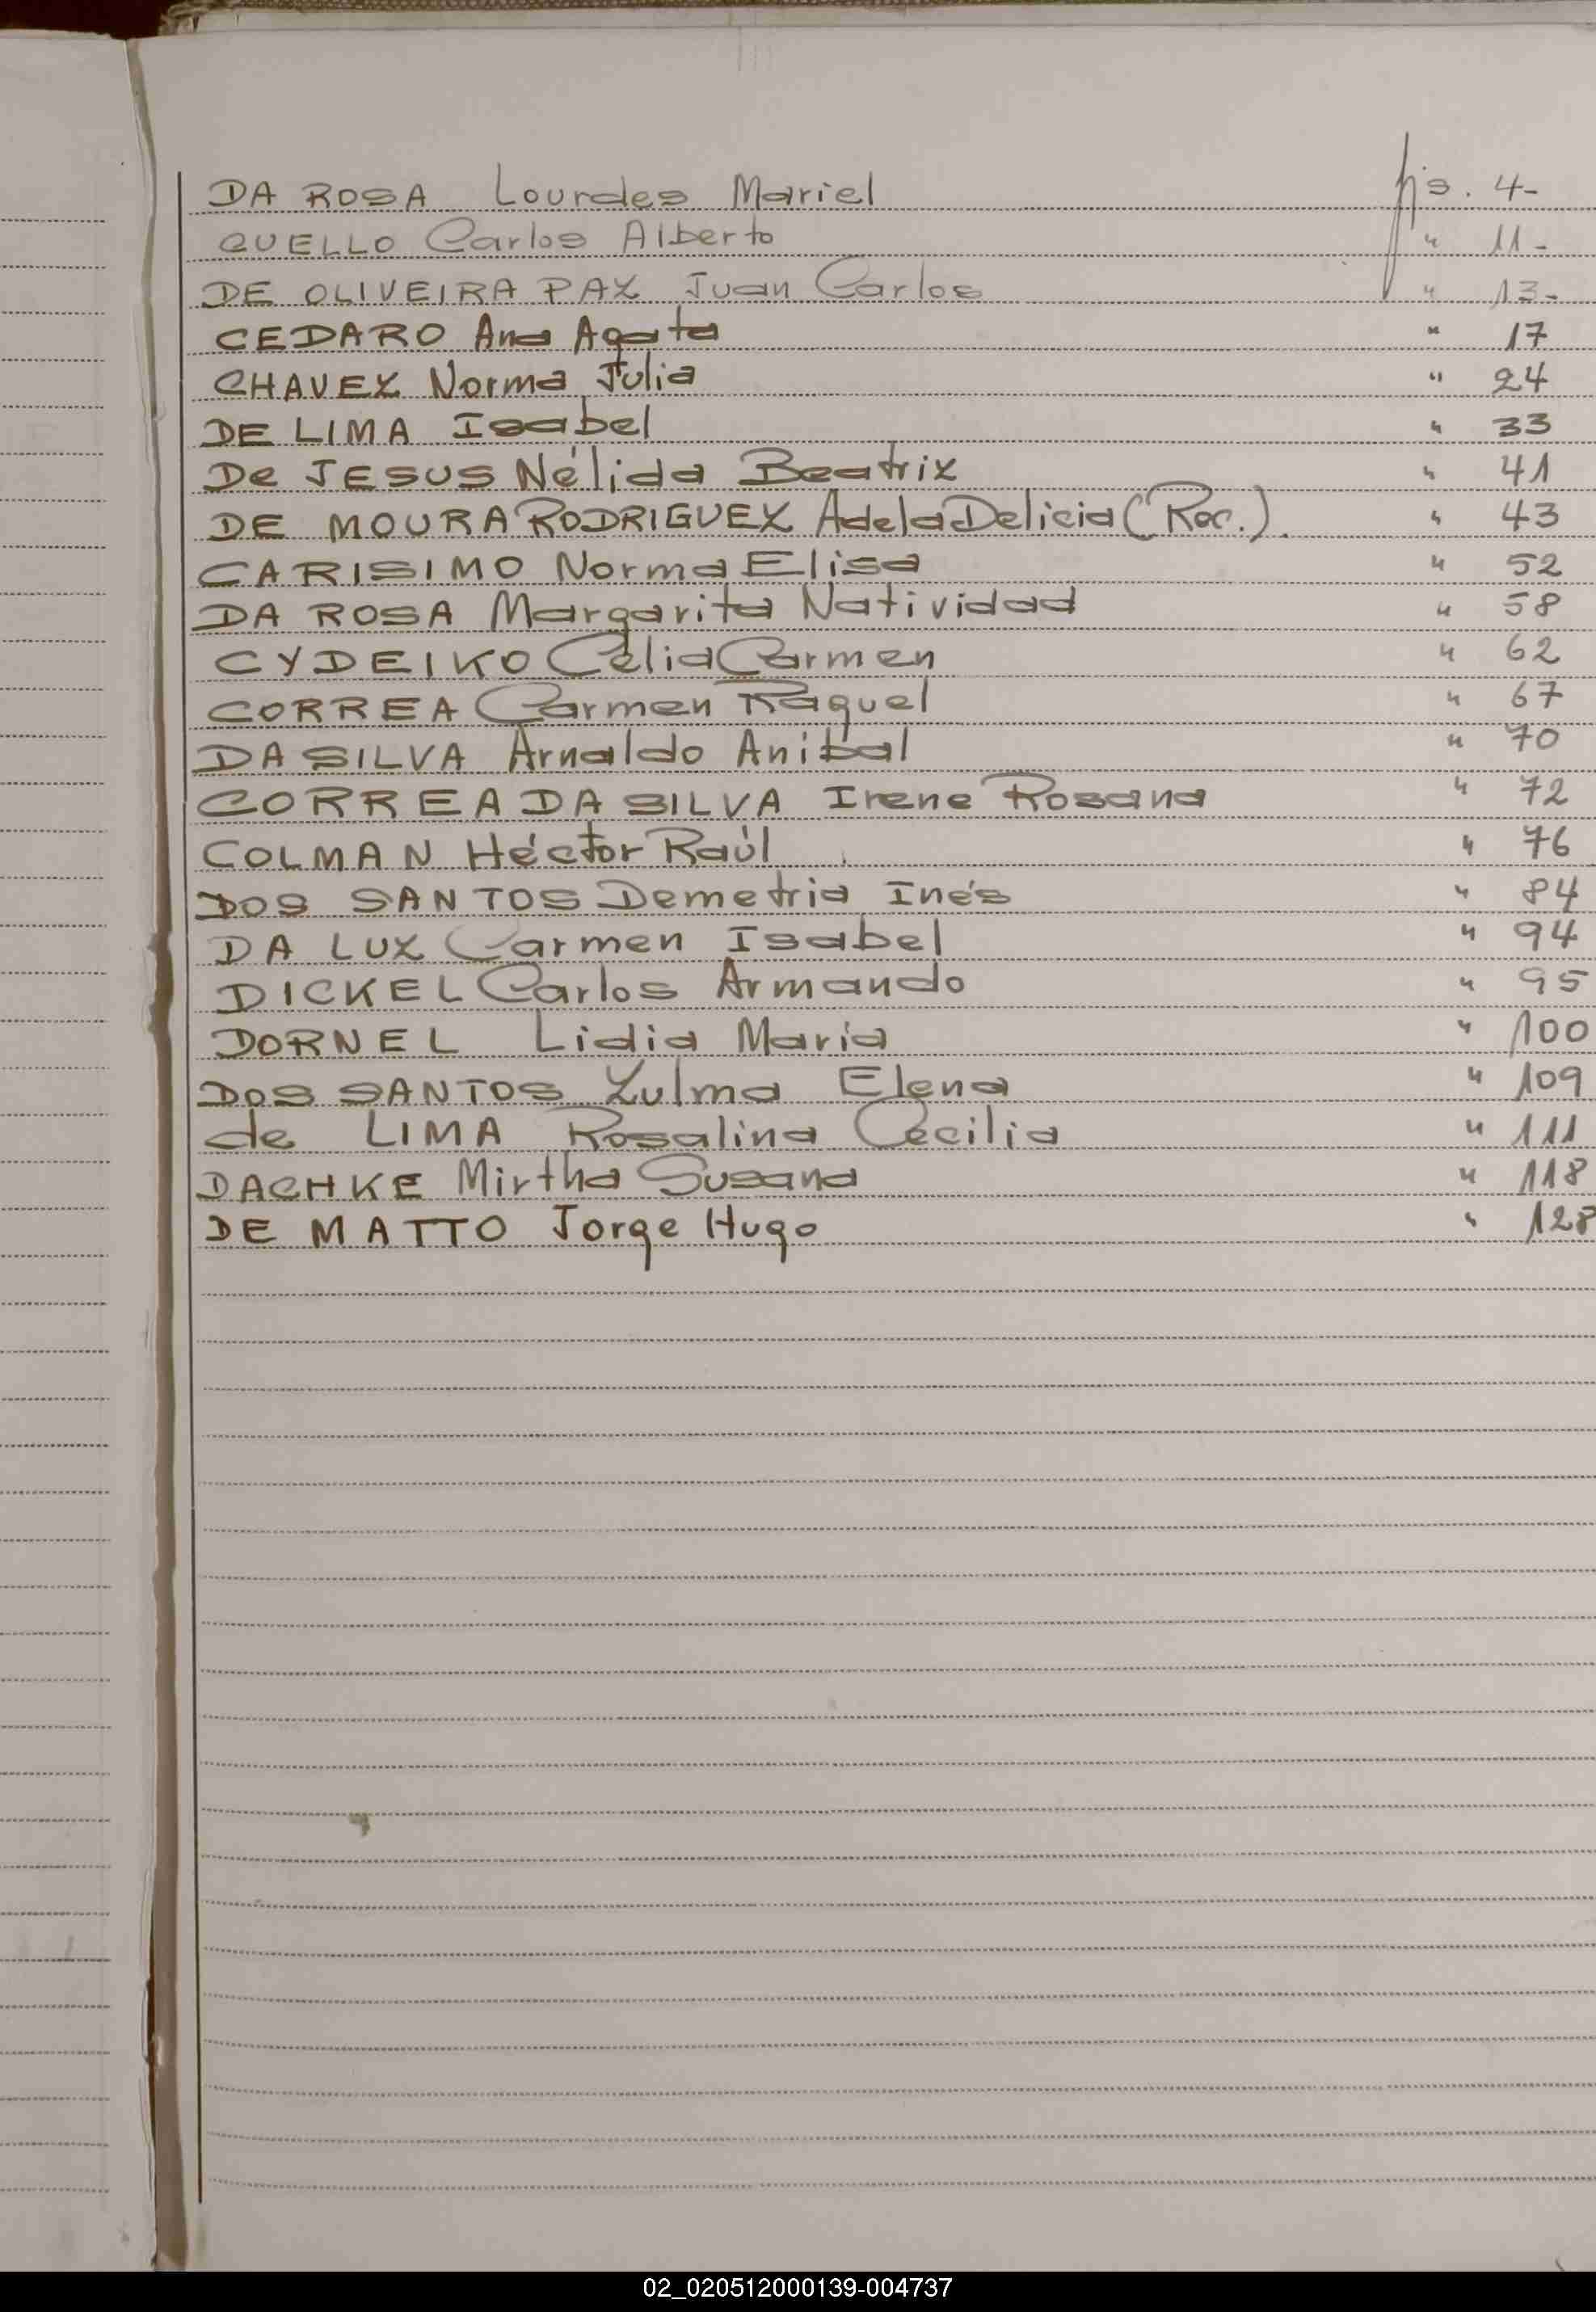 DA ROSA Lourdes Mariel fjs. 4-
CUELLO Carlos Alberto " 11-
DE OLIVEIRA PAZ Juan Carlos " 13-
CEDARO Ana Agata " 17
CHAVEZ Norma Julia " 24
DE LIMA Isabel " 33
De JESUS Nélida Beatriz " 41
DE MOURA RODRIGUEZ Adela Delicia (Rec.). " 43
CARISIMO Norma Elisa " 52
DA ROSA Margarita Natividad " 58
CYDEIKO Celia Carmen " 62
CORREA Carmen Raquel " 67
DA SILVA Arnaldo Anibal " 70
CORREA DA SILVA Irene Rosana " 72
COLMAN Héctor Raúl " 76
DOS SANTOS Demetria Inés " 84
DA LUZ Carmen Isabel " 94
DICKEL Carlos Armando " 95
DORNEL Lidia María " 100
DOS SANTOS Zulma Elena " 109
de LIMA Rosalina Cecilia " 111
DACHKE Mirtha Susana " 118
DE MATTO Jorge Hugo " 128
02_020512000139-004737